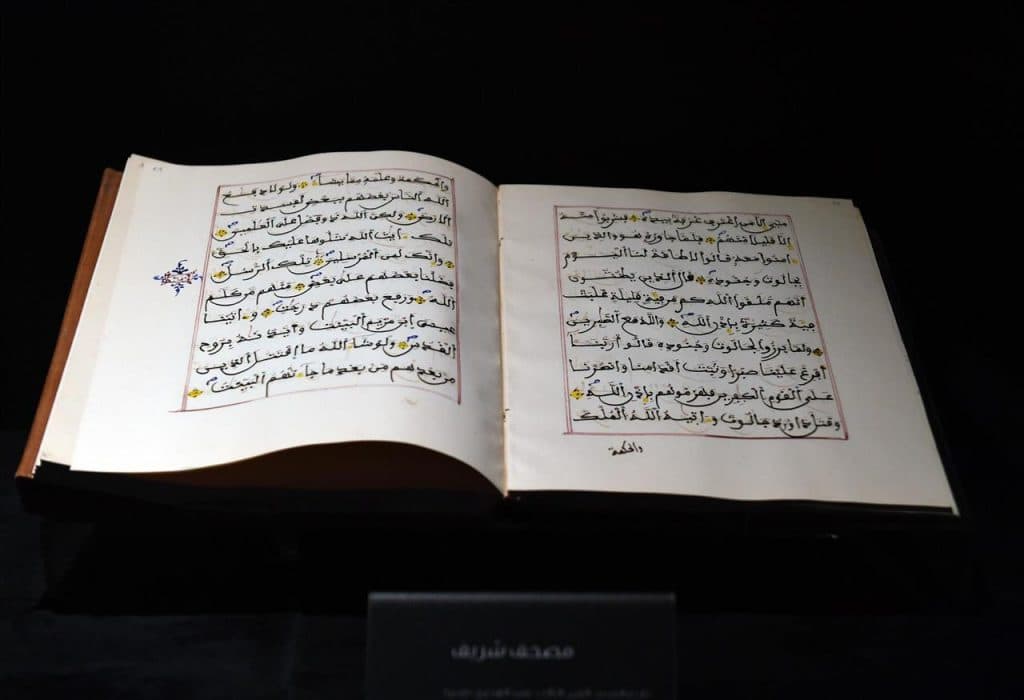 مني إلا من اغترف غرفة بيده فشربوا منه
إلا قليلا منهم فلما جاوزه هو والذين
ءامنوا معه قالوا لا طاقة لنا اليوم
بجالوت وجنوده قال الذين يظنون
أنهم ملقوا الله كم من فية قليلة غلبت
فية كثيرة بإذن الله والله مع الصبرين
ولما برزوا لجالوت وجنوده قالوا ربنا
أفرغ علينا صبرا وثبت أقدامنا وانصرنا
على القوم الكفرين فهزموهم بإذن الله
وقتل داوود جالوت وءاتيه الله الملك
والحكمة
والحكمة وعلمه مما يشاء ولولا دفع
الله الناس بعضهم ببعض لفسدت
الأرض ولكن الله ذو فضل على العلمين
تلك ءايت الله نتلوها عليك بالحق
وإنك لمن المرسلين تلك الرسل
فضلنا بعضهم على بعض منهم من كلم
الله ورفع بعضهم درجت وءاتينا
عيسى ابن مريم البينت وأيدنه بروح
القدس ولو شاء الله ما اقتتل الذين
من بعدهم من بعد ما جاءتهم البينت
مصحف شريف